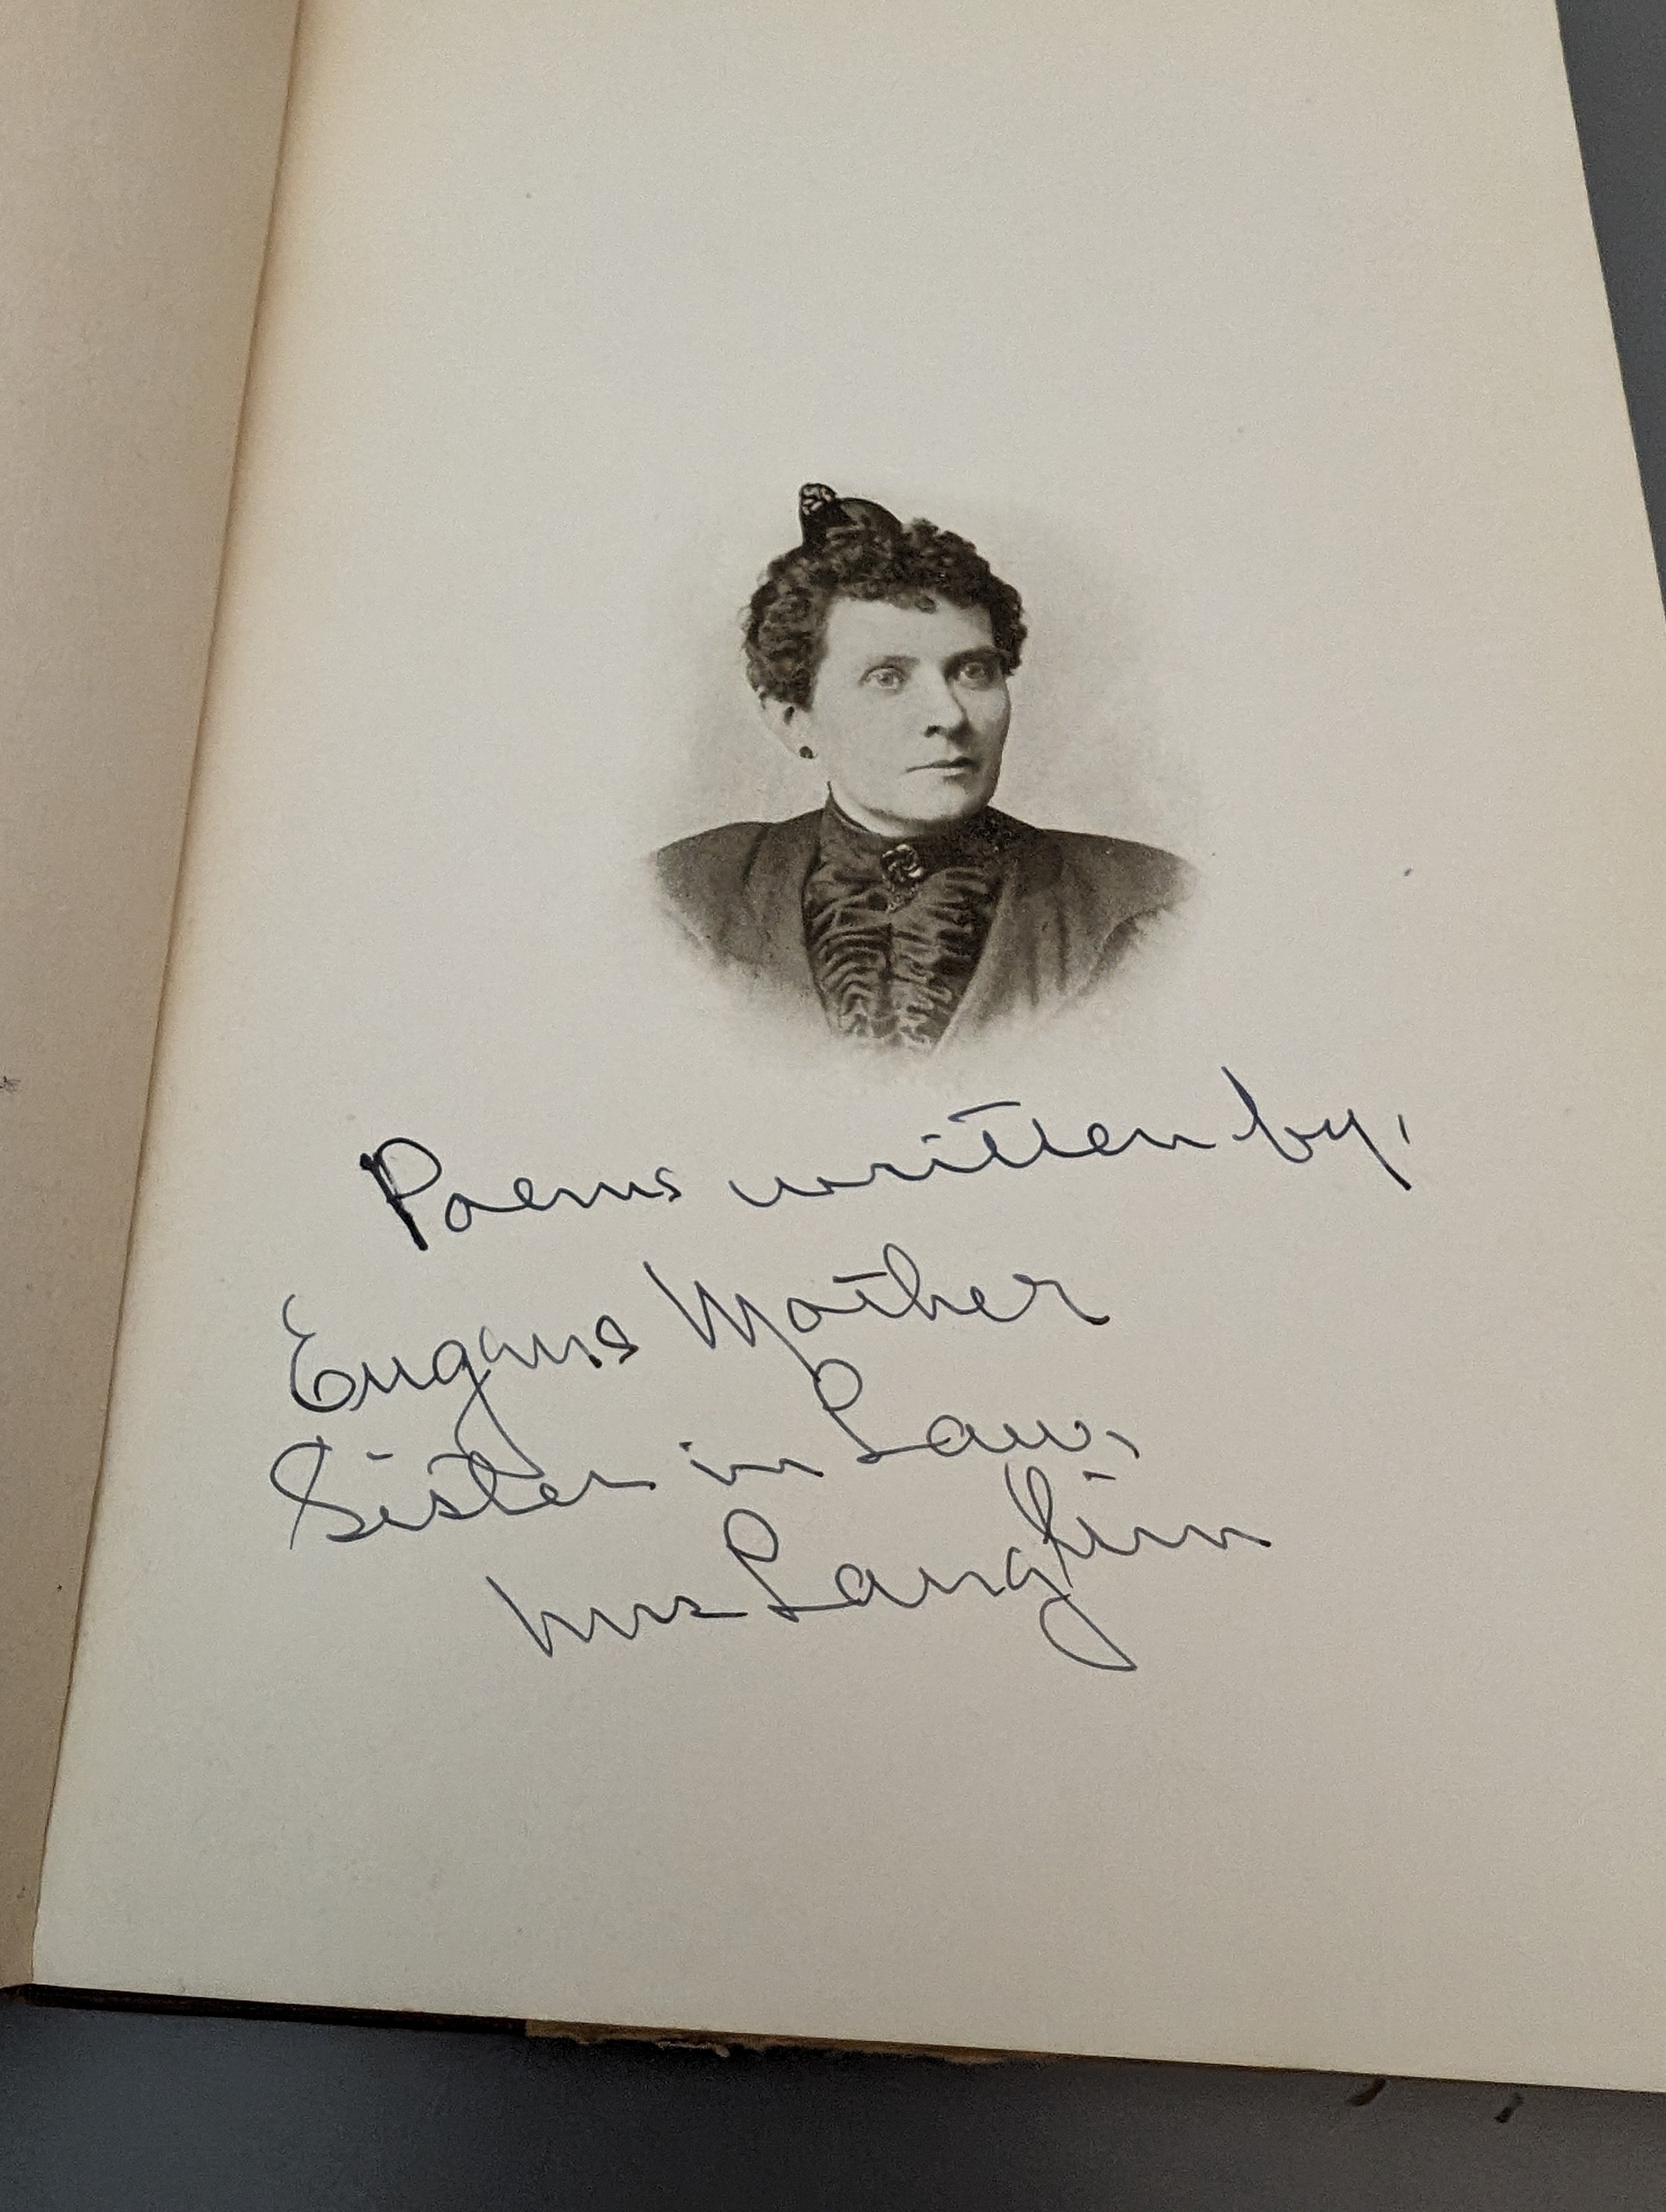 Poems written by,
Mother
Sister in Law,
Mrs